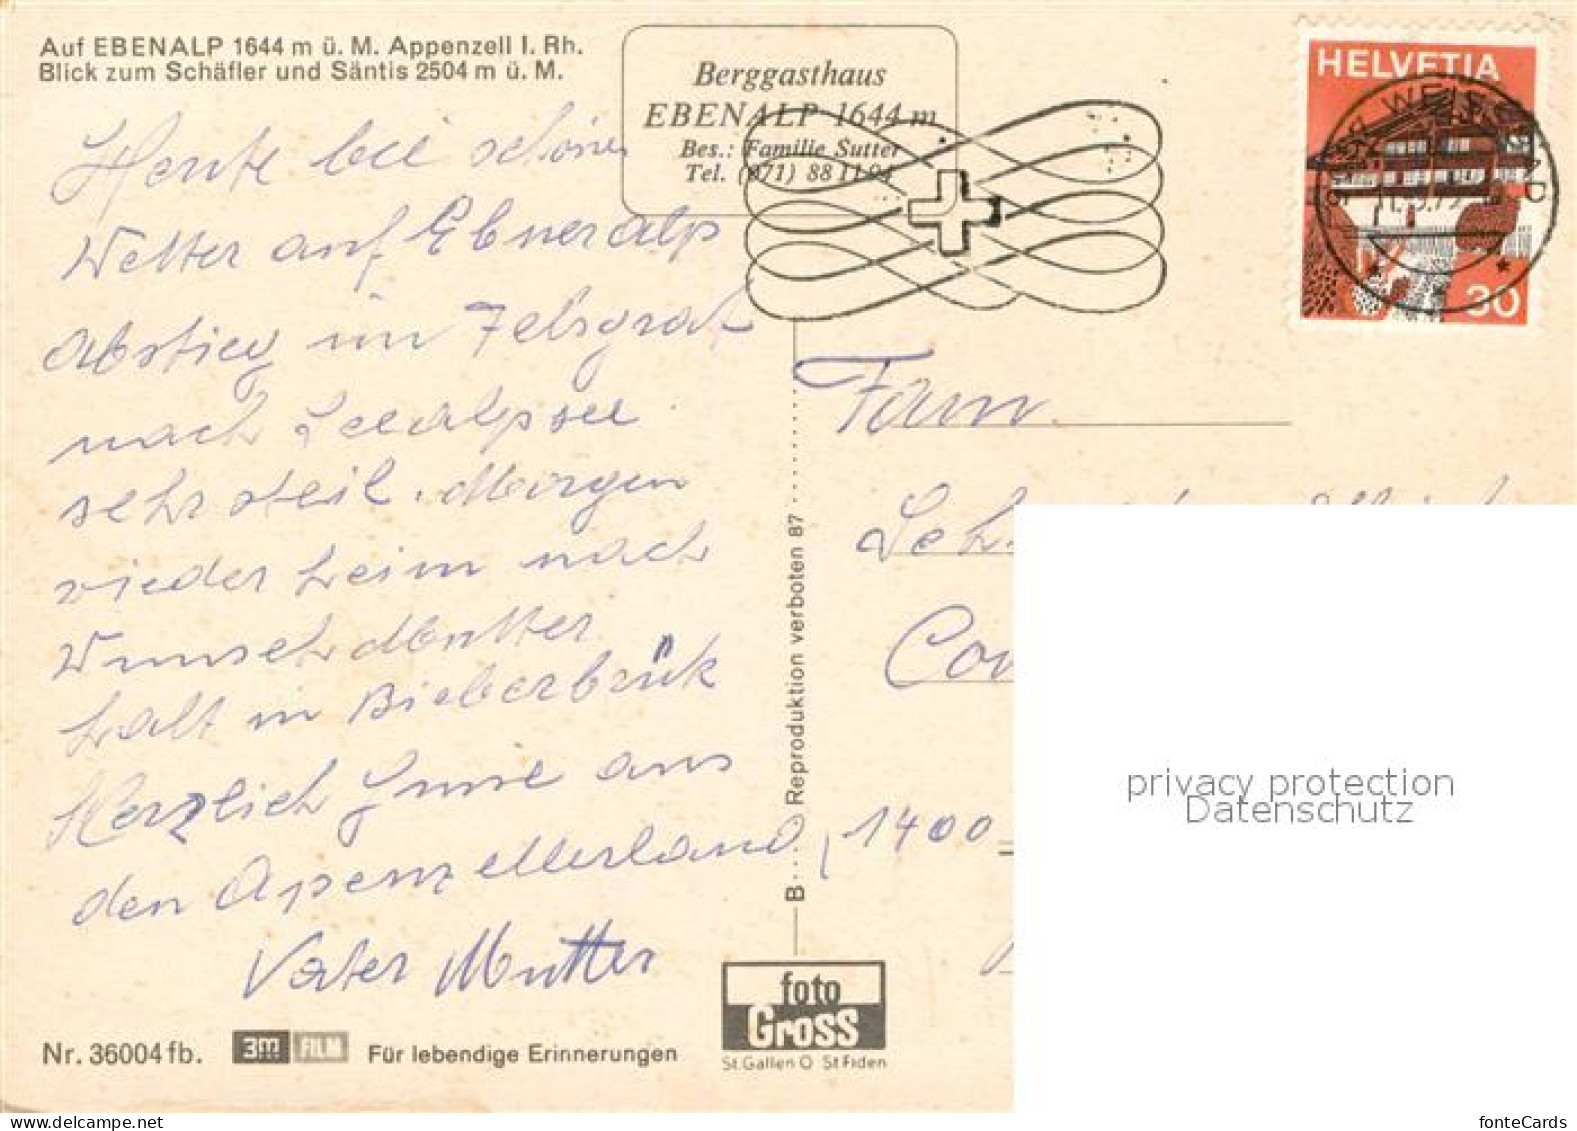 Auf EBENALP 1644 m ü. M. Appenzell I. Rh.
Blick zum Schäfler und Säntis 2504 m ü. M.
Berggasthaus
EBENALP 1644 m
Bes.: Familie Sutter
Tel. (071) 88 11 94
HELVETIA
30
Heute bei schönen
Wetter auf Ebneralp
Abstieg im Felsgrat
nach Seealpsee
sehr steil. Morgen
wieder heim nach
Wunsch Mutter
halt in Bieberbrük
Herzlich Grüse aus
den Apenzellerland
Vater Mutter
Fam.
1400
B Reproduktion verboten 87
Nr. 36004 fb.
3m FILM
Für lebendige Erinnerungen
foto
Gross
St. Gallen O St Fiden
privacy protection
Datenschutz
fonteCards